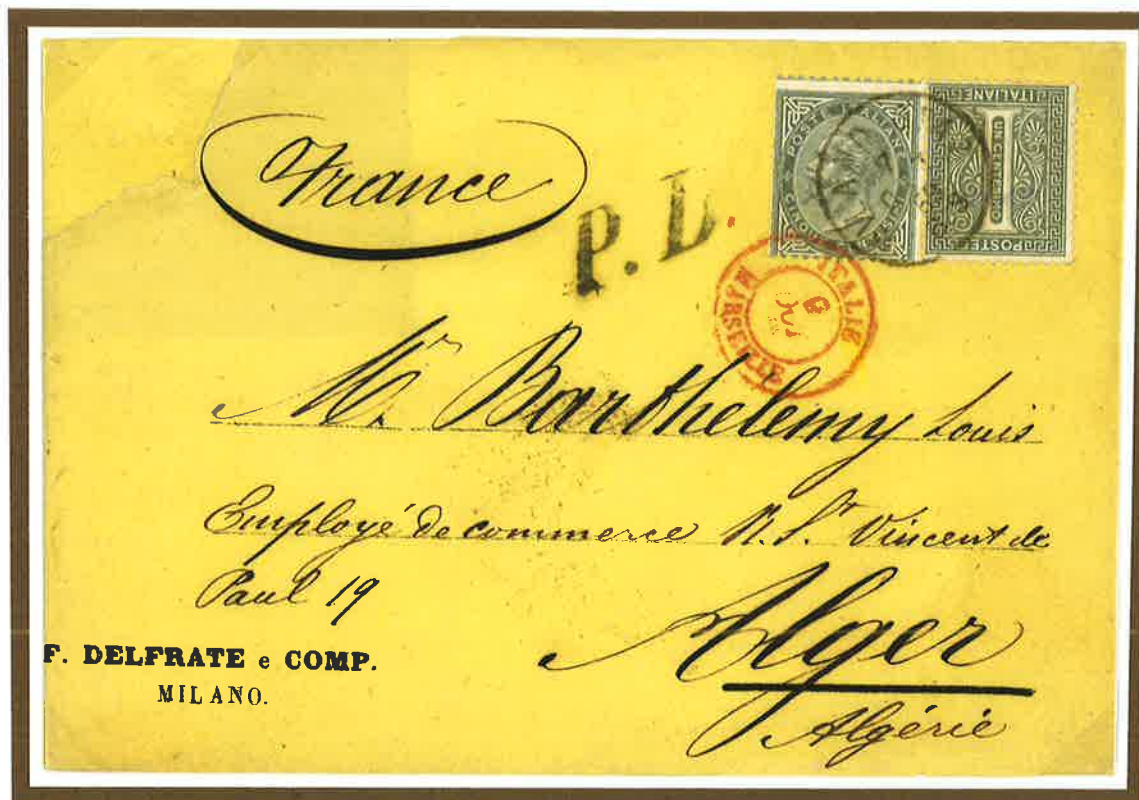 France
P. D.
POSTE ITALIANE
ITALIANE
UN CENT
POSTE
ITALIE
6
MARSEILLE
Mr. Barthelemy Louis
Employé de commerce R. St. Vincent de
Paul 19
Alger
Algérie
F. DELFRATE e COMP.
MILANO.